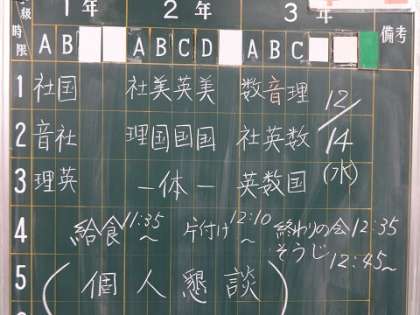 級 1年 2年 3年 備考
時限 AB ABCD ABC
1 社国 社美英美 数音理 12/14
2 音社 理国国国 社英数
3 理英 ー体ー 英数国 (水)
4 給食11:35~ 片付け12:10~ 終わりの会12:35
そうじ12:45~
5 (個人懇談)